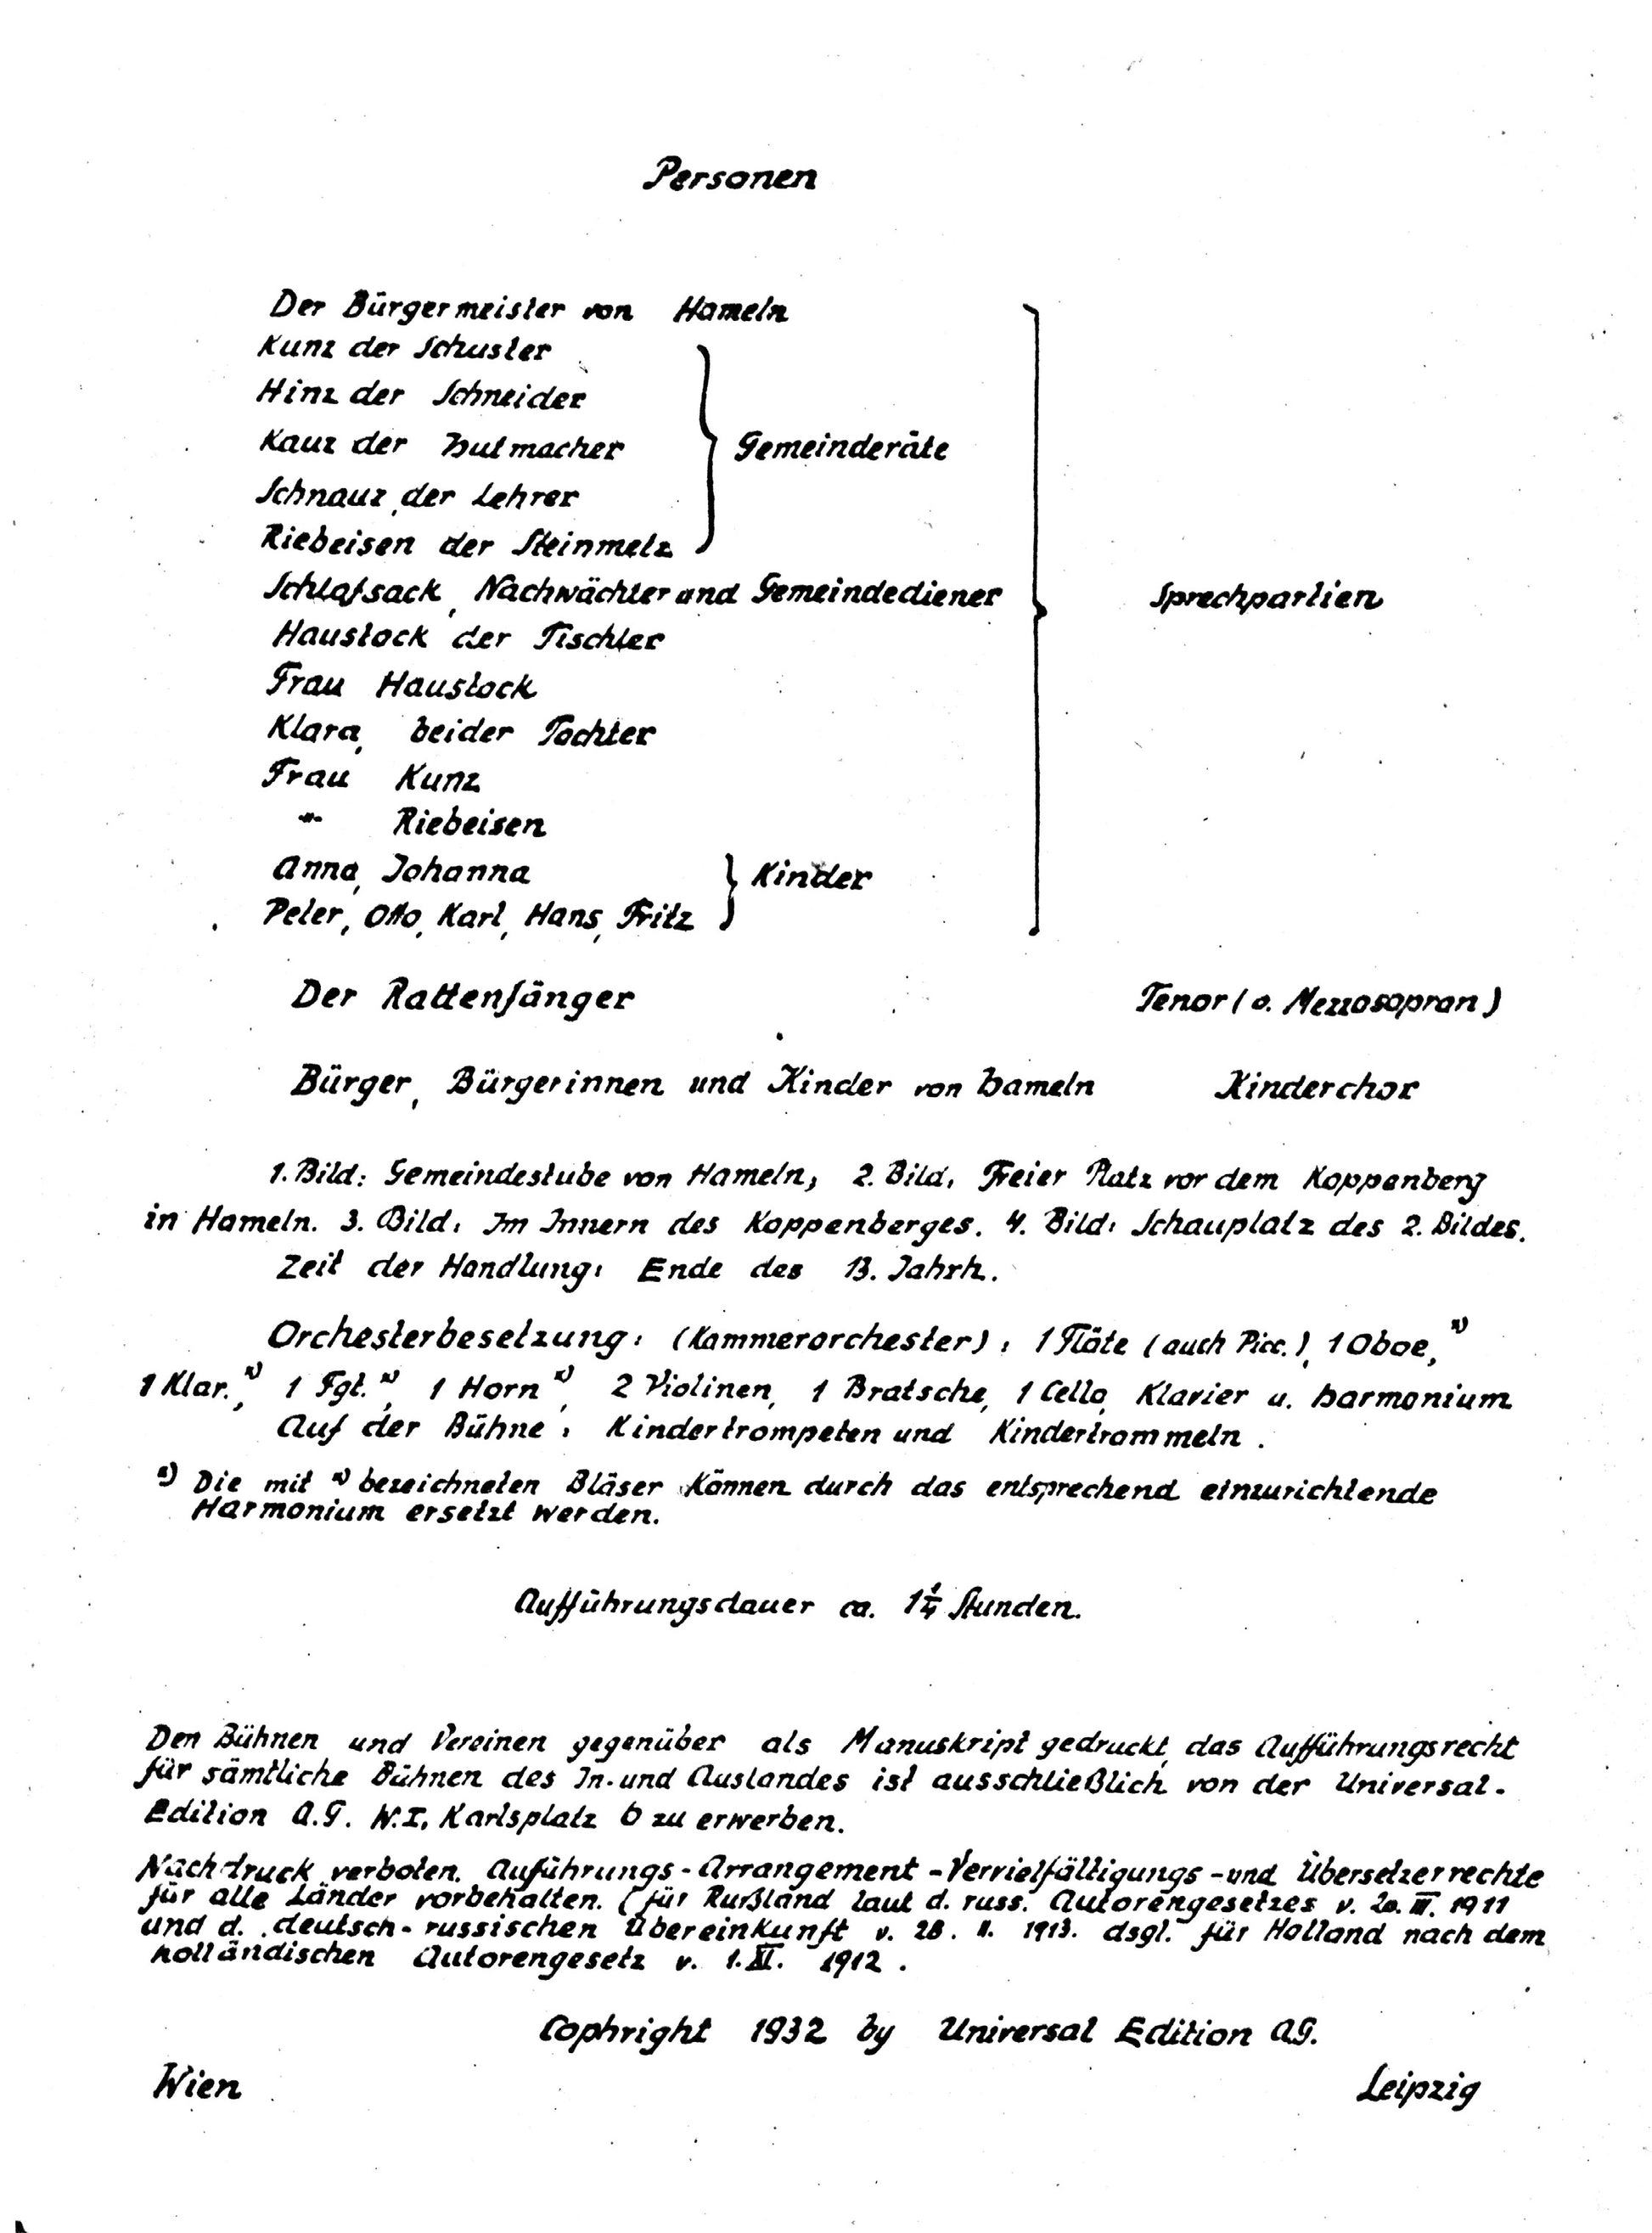 Personen
Der Bürgermeister von Hameln
Kunz der Schuster
Hinz der Schneider
Kauz der Hutmacher
Gemeinderäte
Schnauz, der Lehrer
Riebeisen der Steinmetz
Schlafsack, Nachwächter und Gemeindediener
Sprechpartien
Haustock der Tischler
Frau Haustock
Klara, beider Tochter
Frau Kunz
-"- Riebeisen
Anna, Johanna
Kinder
Peter, Otto, Karl, Hans, Fritz
Der Rattenfänger Tenor (o. Mezzosopran)
Bürger, Bürgerinnen und Kinder von Hameln Kinderchor
1. Bild: Gemeindestube von Hameln; 2. Bild: Freier Platz vor dem Koppenberg
in Hameln. 3. Bild: Im Innern des Koppenberges. 4. Bild: Schauplatz des 2. Bildes.
Zeit der Handlung: Ende des 13. Jahrh.
Orchesterbesetzung: (Kammerorchester): 1 Flöte (auch Picc.), 1 Oboe, x)
1 Klar. x), 1 Fgt. x), 1 Horn x), 2 Violinen, 1 Bratsche, 1 Cello, Klavier u. Harmonium
Auf der Bühne: Kindertrompeten und Kindertrommeln.
x) Die mit x) bezeichneten Bläser können durch das entsprechend einzurichtende
Harmonium ersetzt werden.
Aufführungsdauer ca. 1 1/4 Stunden.
Den Bühnen und Vereinen gegenüber als Manuskript gedruckt, das Aufführungsrecht
für sämtliche Bühnen des In- und Auslandes ist ausschließlich von der Universal-
Edition A.G. W.I, Karlsplatz 6 zu erwerben.
Nachdruck verboten. Auführungs-Arrangement-Vervielfältigungs-und Übersetzerrechte
für alle Länder vorbehalten. (für Rußland laut d. russ. Autorengesetzes v. 20. III. 1911
und d. deutsch-russischen Übereinkunft v. 28. II. 1913. dsgl. für Holland nach dem
holländischen Autorengesetz v. 1. XI. 1912.
Cophright 1932 by Universal Edition A.G.
Wien Leipzig